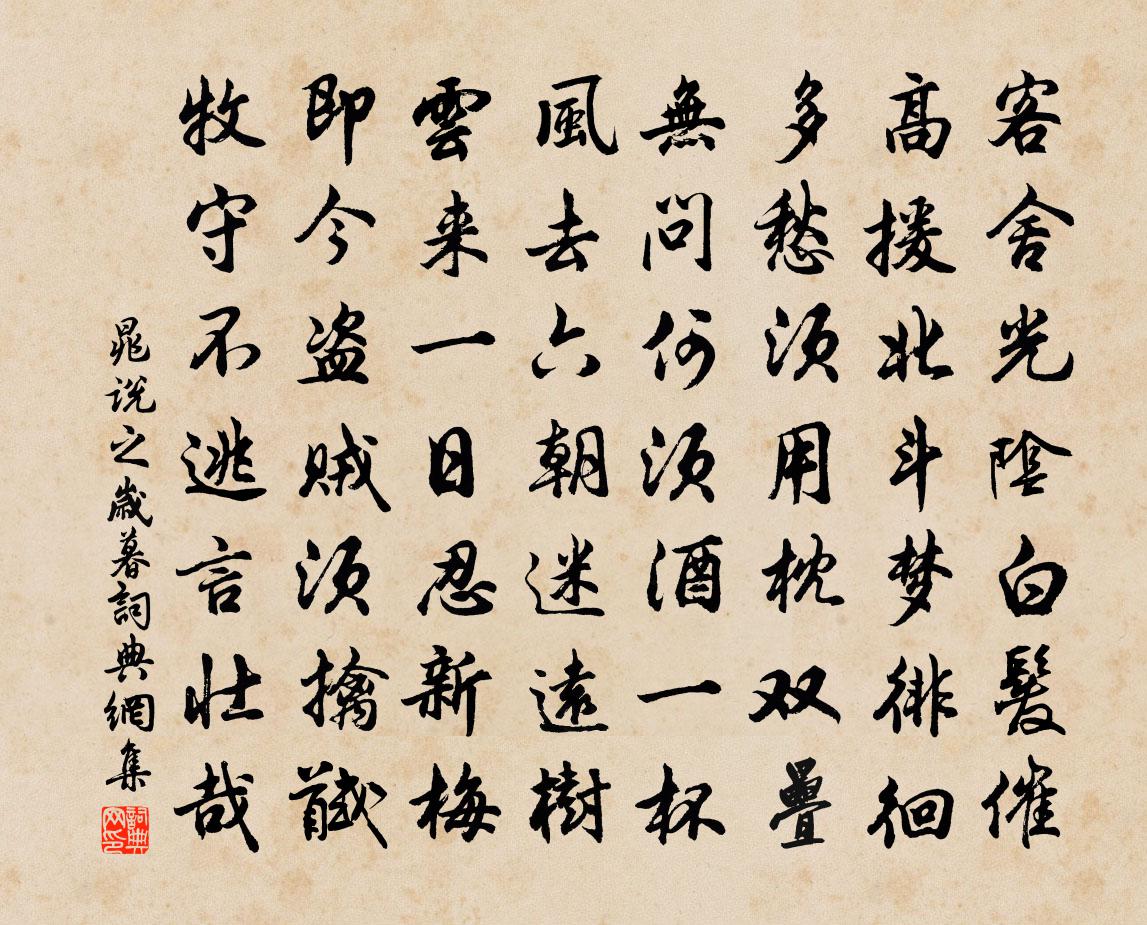 客舍光陰白髮催
高援北斗梦徘徊
多愁須用枕双疊
無問何須酒一杯
風去六朝迷遠樹
雲来一日忍新梅
即今盗賊須擒馘
牧守不逃言壮哉
晁説之歲暮詞典網集
詞典网印